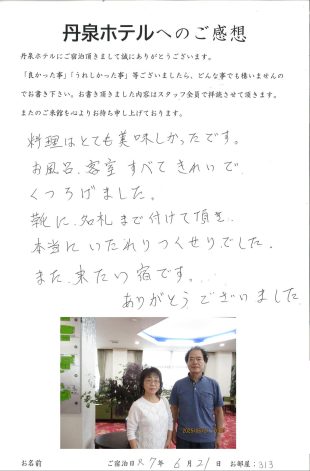 丹泉ホテルへのご感想
丹泉ホテルにご宿泊頂きまして誠にありがとうございます。
「良かった事」「うれしかった事」等ございましたら、どんな事でも構いませんの
でお書き下さい。お書き頂きました内容はスタッフ全員で拝読させて頂きます。
またのご来館を心よりお待ち申し上げております。
料理はとても美味しかったです。
お風呂、客室 すべて きれいで、
くつろげました。
靴に、名札まで付けて頂き、
本当に いたれり つくせりでした。
また、来たい宿です。
ありがとう ございました
お名前 ご宿泊日 R7年 6月21日 お部屋:313